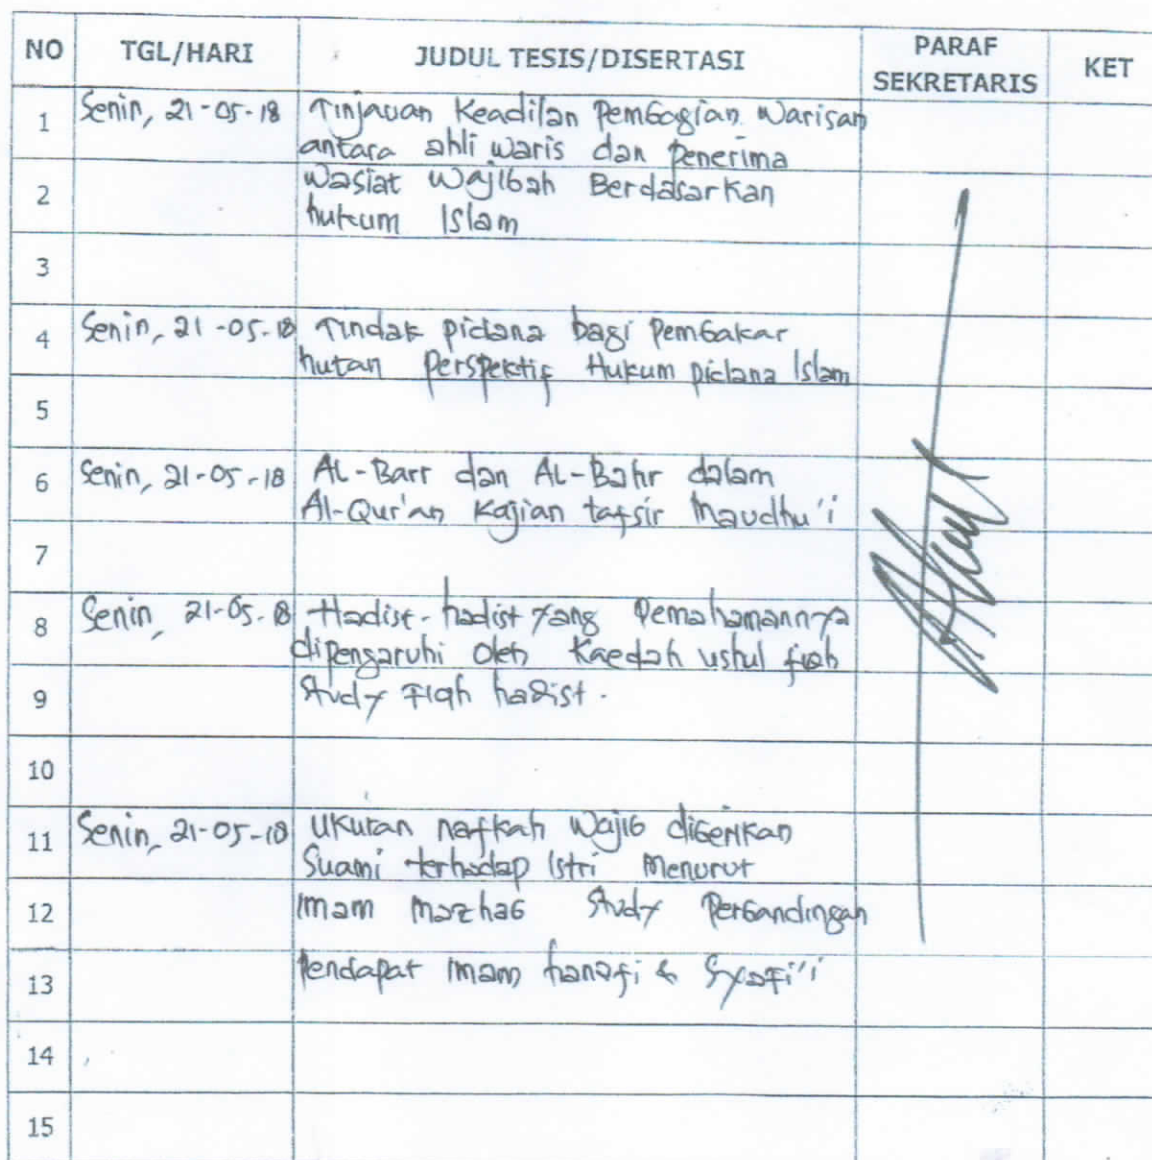 NO TGL/HARI JUDUL TESIS/DISERTASI PARAF SEKRETARIS KET
1 Senin, 21-05-18 Tinjauan Keadilan Pembagian Warisan
antara ahli waris dan Penerima
2 Wasiat Wajibah Berdasarkan
hukum Islam
3
4 Senin, 21-05-18 Tindak pidana bagi Pembakar
hutan Perspektif Hukum pidana Islam
5
6 Senin, 21-05-18 AL-Barr dan AL-Bahr dalam
Al-Qur'an Kajian tafsir Maudhu'i
7
8 Senin, 21-05-18 Hadist-hadist yang Pemahamannya
dipengaruhi Oleh Kaedah ushul fiqh
9 Study Fiqh hadist.
10
11 Senin, 21-05-18 Ukuran nafkah Wajib diberikan
Suami terhadap Istri Menurut
12 Imam Mazhab Study Perbandingan
13 Pendapat Imam hanafi & Syafi'i
14
15